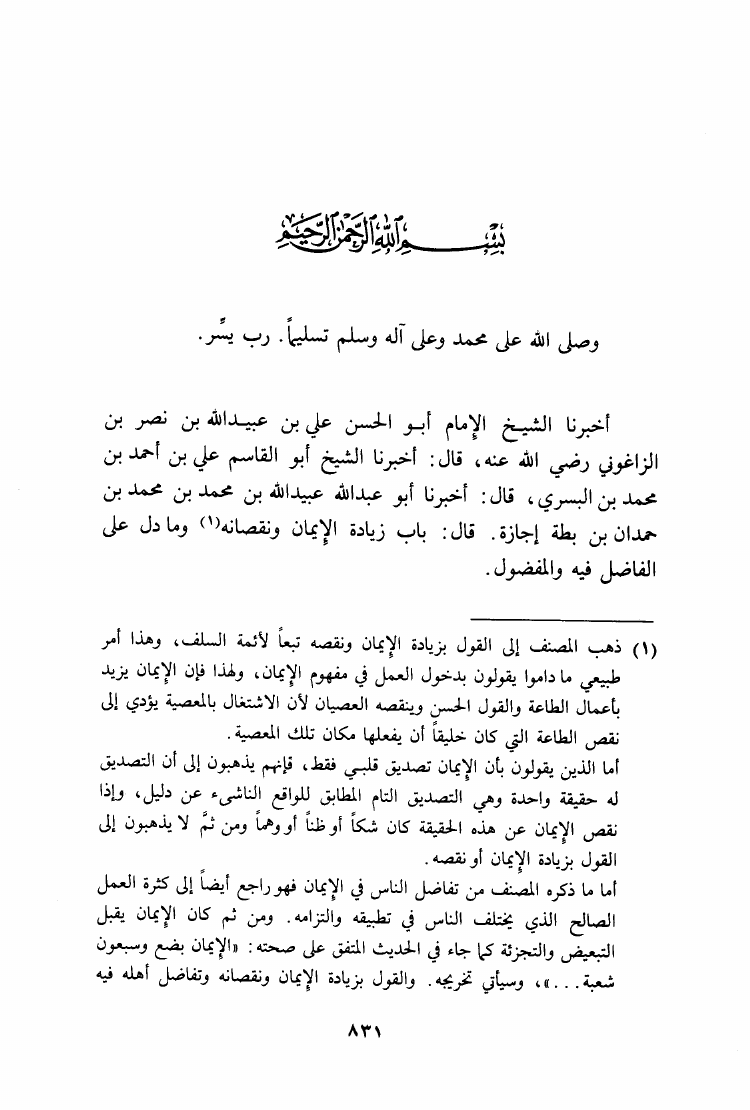 بسم الله الرحمن الرحيم
وصلى الله على محمد وعلى آله وسلم تسليماً. رب يسِّر.
أخبرنا الشيخ الإمام أبو الحسن علي بن عبيدالله بن نصر بن
الزاغوني رضي الله عنه، قال: أخبرنا الشيخ أبو القاسم علي بن أحمد بن
محمد بن البسري، قال: أخبرنا أبو عبدالله عبيدالله بن محمد بن محمد بن
حمدان بن بطة إجازة. قال: باب زيادة الإيمان ونقصانه(١) وما دل على
الفاضل فيه والمفضول.
(١) ذهب المصنف إلى القول بزيادة الإيمان ونقصه تبعاً لأئمة السلف، وهذا أمر
طبيعي ما داموا يقولون بدخول العمل في مفهوم الإيمان، ولهذا فإن الإيمان يزيد
بأعمال الطاعة والقول الحسن وينقصه العصيان لأن الاشتغال بالمعصية يؤدي إلى
نقص الطاعة التي كان خليقاً أن يفعلها مكان تلك المعصية.
أما الذين يقولون بأن الإيمان تصديق قلبي فقط، فإنهم يذهبون إلى أن التصديق
له حقيقة واحدة وهي التصديق التام المطابق للواقع الناشىء عن دليل، وإذا
نقص الإيمان عن هذه الحقيقة كان شكاً أو ظناً أو وهماً ومن ثمَّ لا يذهبون إلى
القول بزيادة الإيمان أو نقصه.
أما ما ذكره المصنف من تفاضل الناس في الإيمان فهو راجع أيضاً إلى كثرة العمل
الصالح الذي يختلف الناس في تطبيقه والتزامه. ومن ثم كان الإيمان يقبل
التبعيض والتجزئة كما جاء في الحديث المتفق على صحته: «الإيمان بضع وسبعون
شعبة...»، وسيأتي تخريجه. والقول بزيادة الإيمان ونقصانه وتفاضل أهله فيه
٨٣١